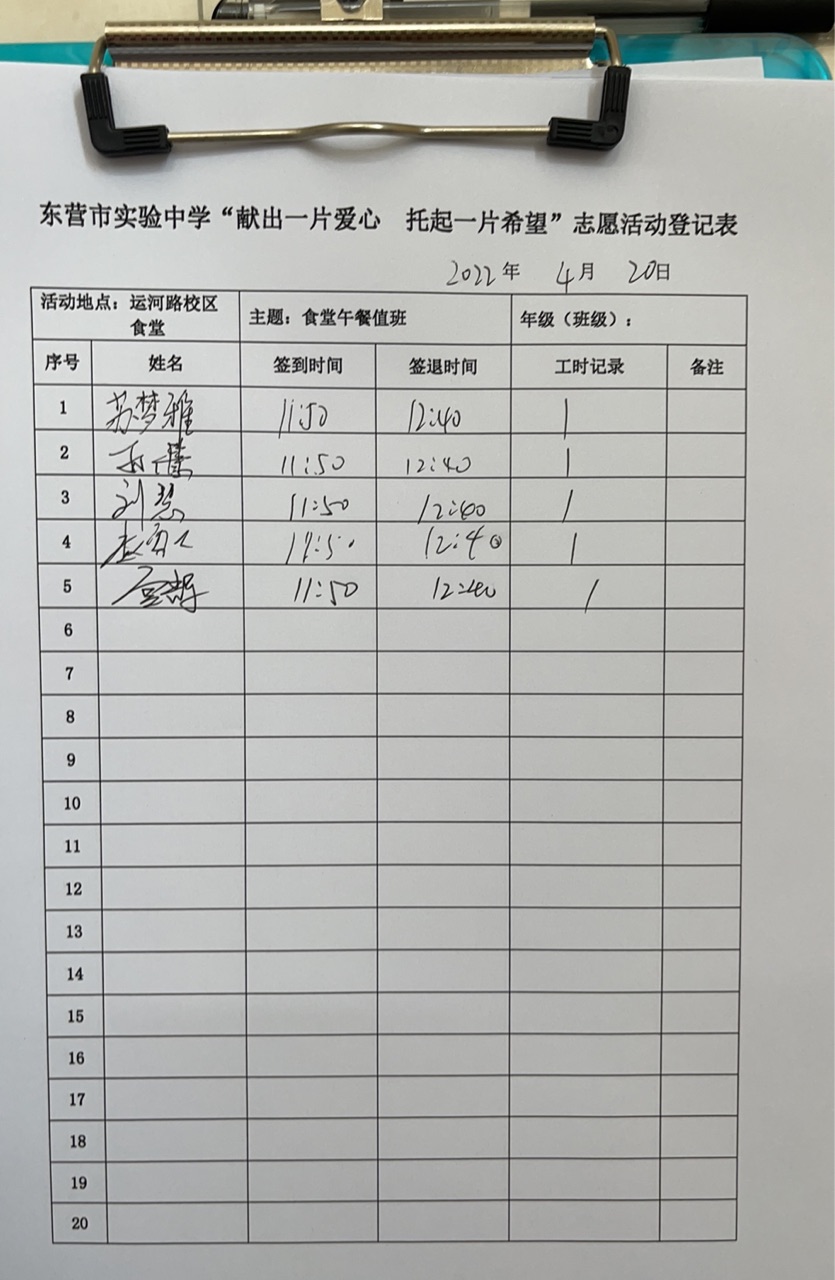 东营市实验中学“献出一片爱心 托起一片希望”志愿活动登记表
2022年 4月 20日
活动地点：运河路校区食堂 主题：食堂午餐值班 年级（班级）：
序号 姓名 签到时间 签退时间 工时记录 备注
1 苏梦雅 11:50 12:40 1
2 11:50 12:40 1
3 刘慧 11:50 12:40 1
4 11:50 12:40 1
5 11:50 12:40 1
6
7
8
9
10
11
12
13
14
15
16
17
18
19
20